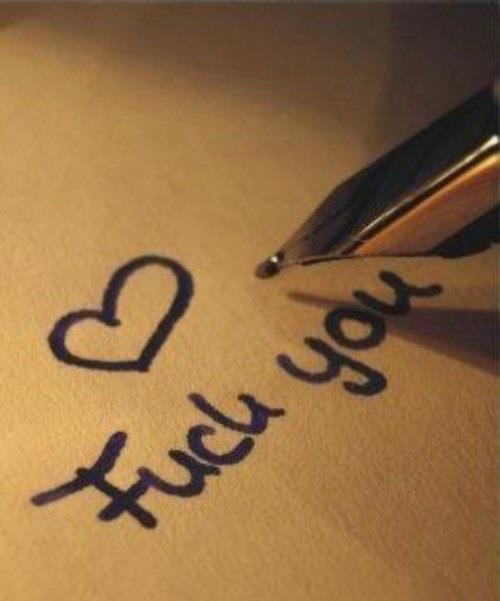 Fuck you